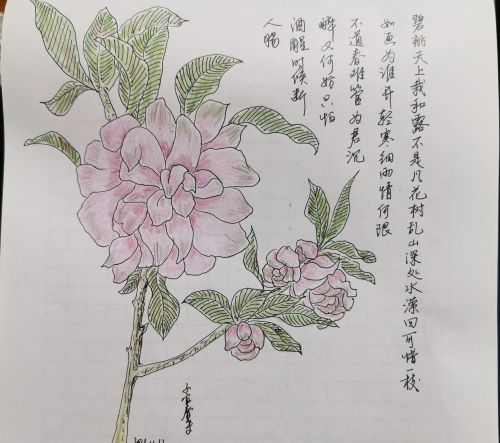 碧桃天上栽和露不是凡花树乱山深处水潆回可惜一枝
如画为谁开轻寒细雨情何限
不道春难管为君沉
醉又何妨只怕
酒醒时候断
人肠